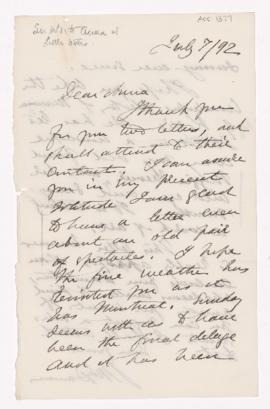 ACC 1377
July 7/92
Dear Anna
I thank you
for your two letters, and
shall attend to their
contents. I can assure
you in my present
solitude I am glad
to have a letter even
about an old pair
of spectacles. I hope
the fine weather has
you as it
has Montreal. Sunday
seems with us to have
been the final deluge
and it has been